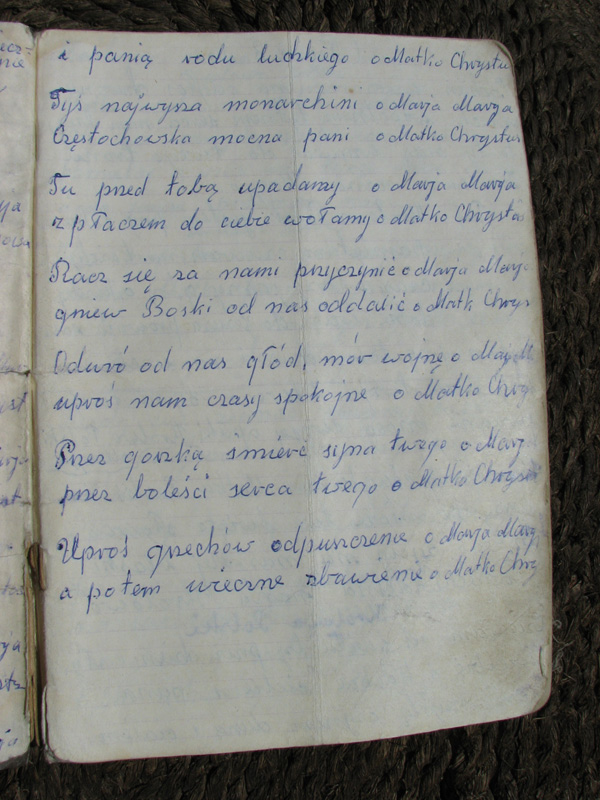 i panią rodu ludzkiego o Matko Chrystu
Tyś najwysza monarchini o Marja Maryja
Częstochowska mocna pani o Matko Chrystus
Tu przed tobą upadamy o Marja Maryja
z płaczem do ciebie wołamy o Matko Chrystus
Racz się za nami przyczynić o Marja Maryj
gniew Boski od nas oddalić o Matk Chrys
Odwró od nas głód, mór wojnę o
uproś nam czasy spokojne o Matko Chry
Przez gorzką śmierć syna twego o Mary
przez boleści serca twego o Matko Chryst
Uproś grzechów odpuszczenie o Marja Mary
a potem wieczne zbawienie o Matko Chry